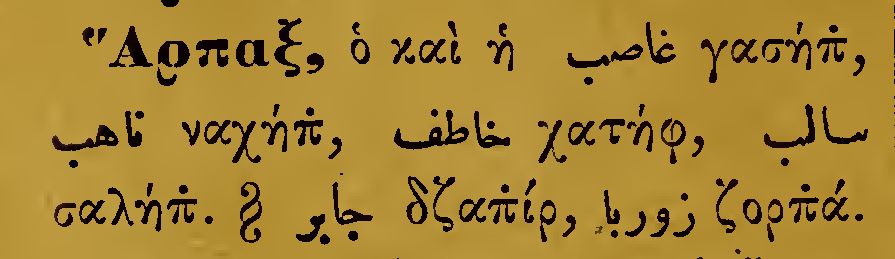 Ἅρπαξ, ὁ καὶ ἡ غاصب γασήπ̇,
ناهب ναχήπ̇, خاطف χατήφ, سالب
σαλήπ̇. جابر δζαπ̇ίρ, زوربا ζορπ̇ά.